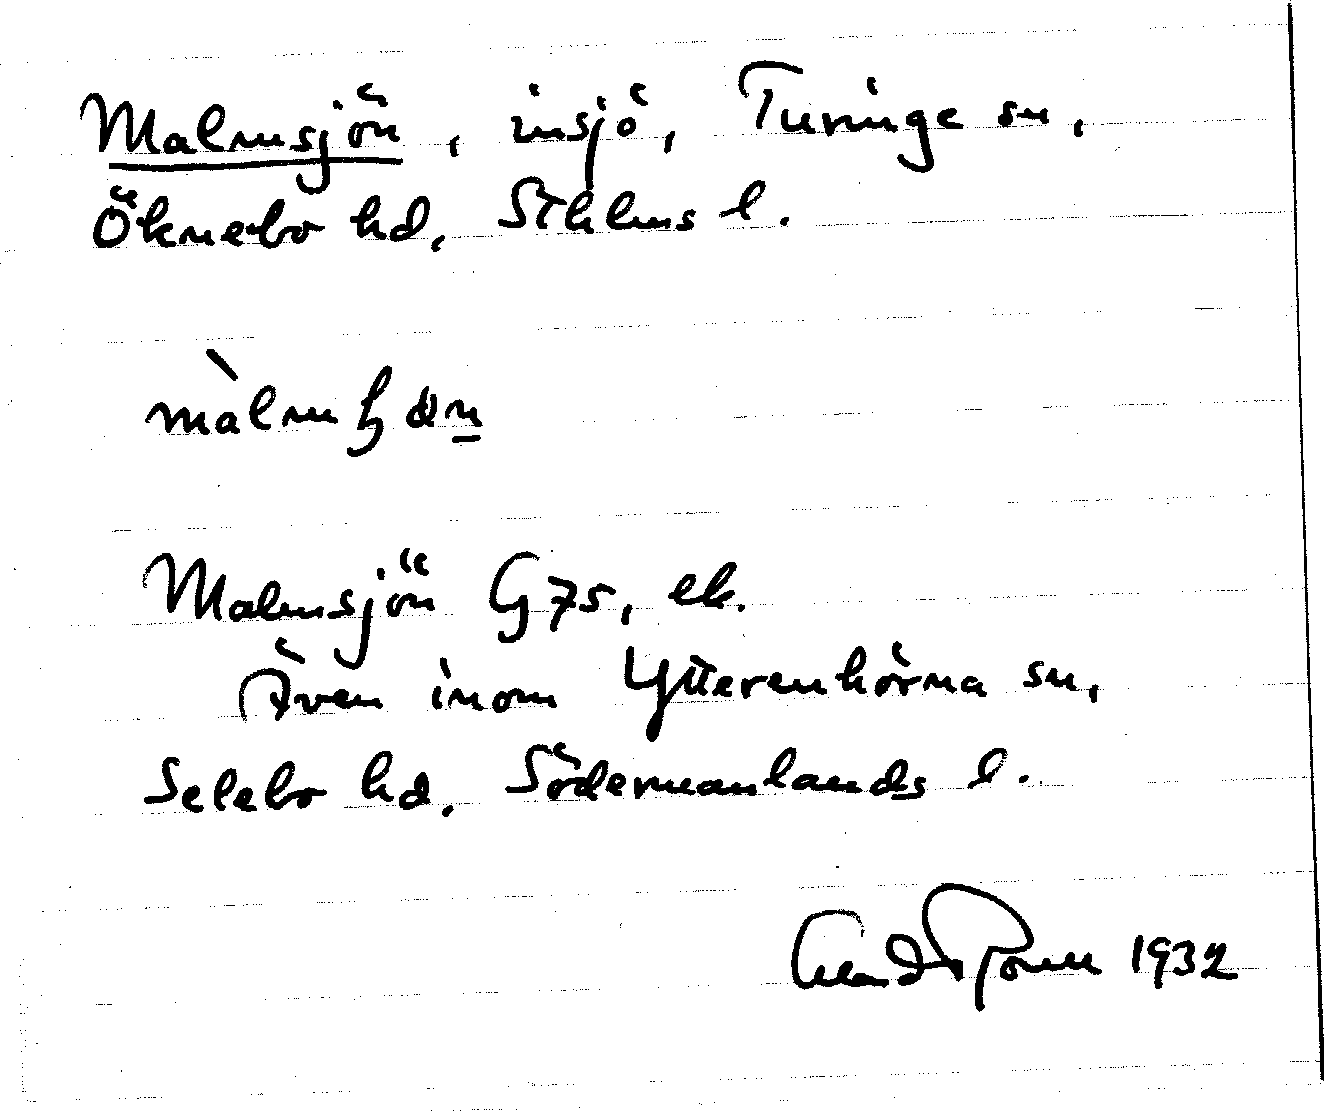 Malmsjön, insjö, Turinge sn,
Öknebo hd, Sthlms l.
Malmsjön G 75, ek.
Även inom Ytterenhörna sn,
Selebo hd, Södermanlands l.
1932